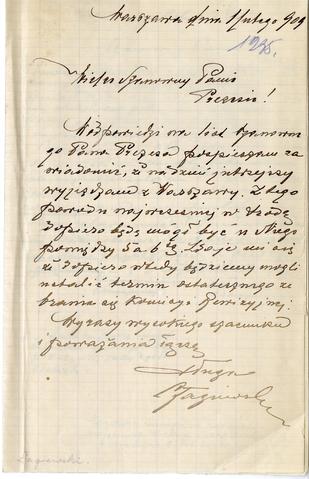 Warszawa dnia 1 lutego 909
1235.
Wielce Szanowny Panie
Prezesie!
W odpowiedzi na list Szanowne
go Pana Prezesa pospieszam za
wiadomić, iż na dzień jutrzejszy
wyjeżdżam z Warszawy. Z tego
powodu najwcześniej w środę
dopiero będę mógł być u Niego
pomiędzy 5 a 6 tą. Zdaje mi się
że dopiero wtedy będziemy mogli
ustalić termin ostatecznego ze
brania się Komisyi Rewizyjnej.
Wyrazy wysokiego szacunku
i poważania łączę
Sługa